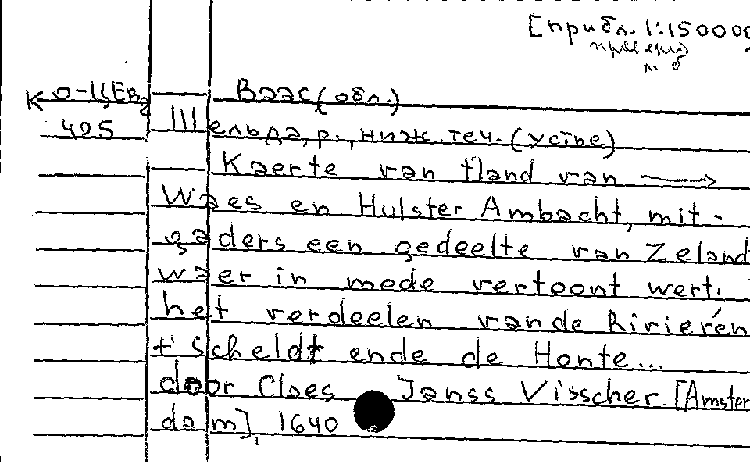 [прибл. 1:150000
Ко-ЦЕв
Ваас (обл.)
405
Шельда, р., ниж. теч. (устье)
Kaerte van tland van →
Waes en Hulster Ambacht, mit-
gaders een gedeelte van Zeland
waer in mede vertoont wert,
het verdeelen vande Rivieren
t'scheldt ende de Honte...
door Claes Janss Visscher [Amster
dam], 1640